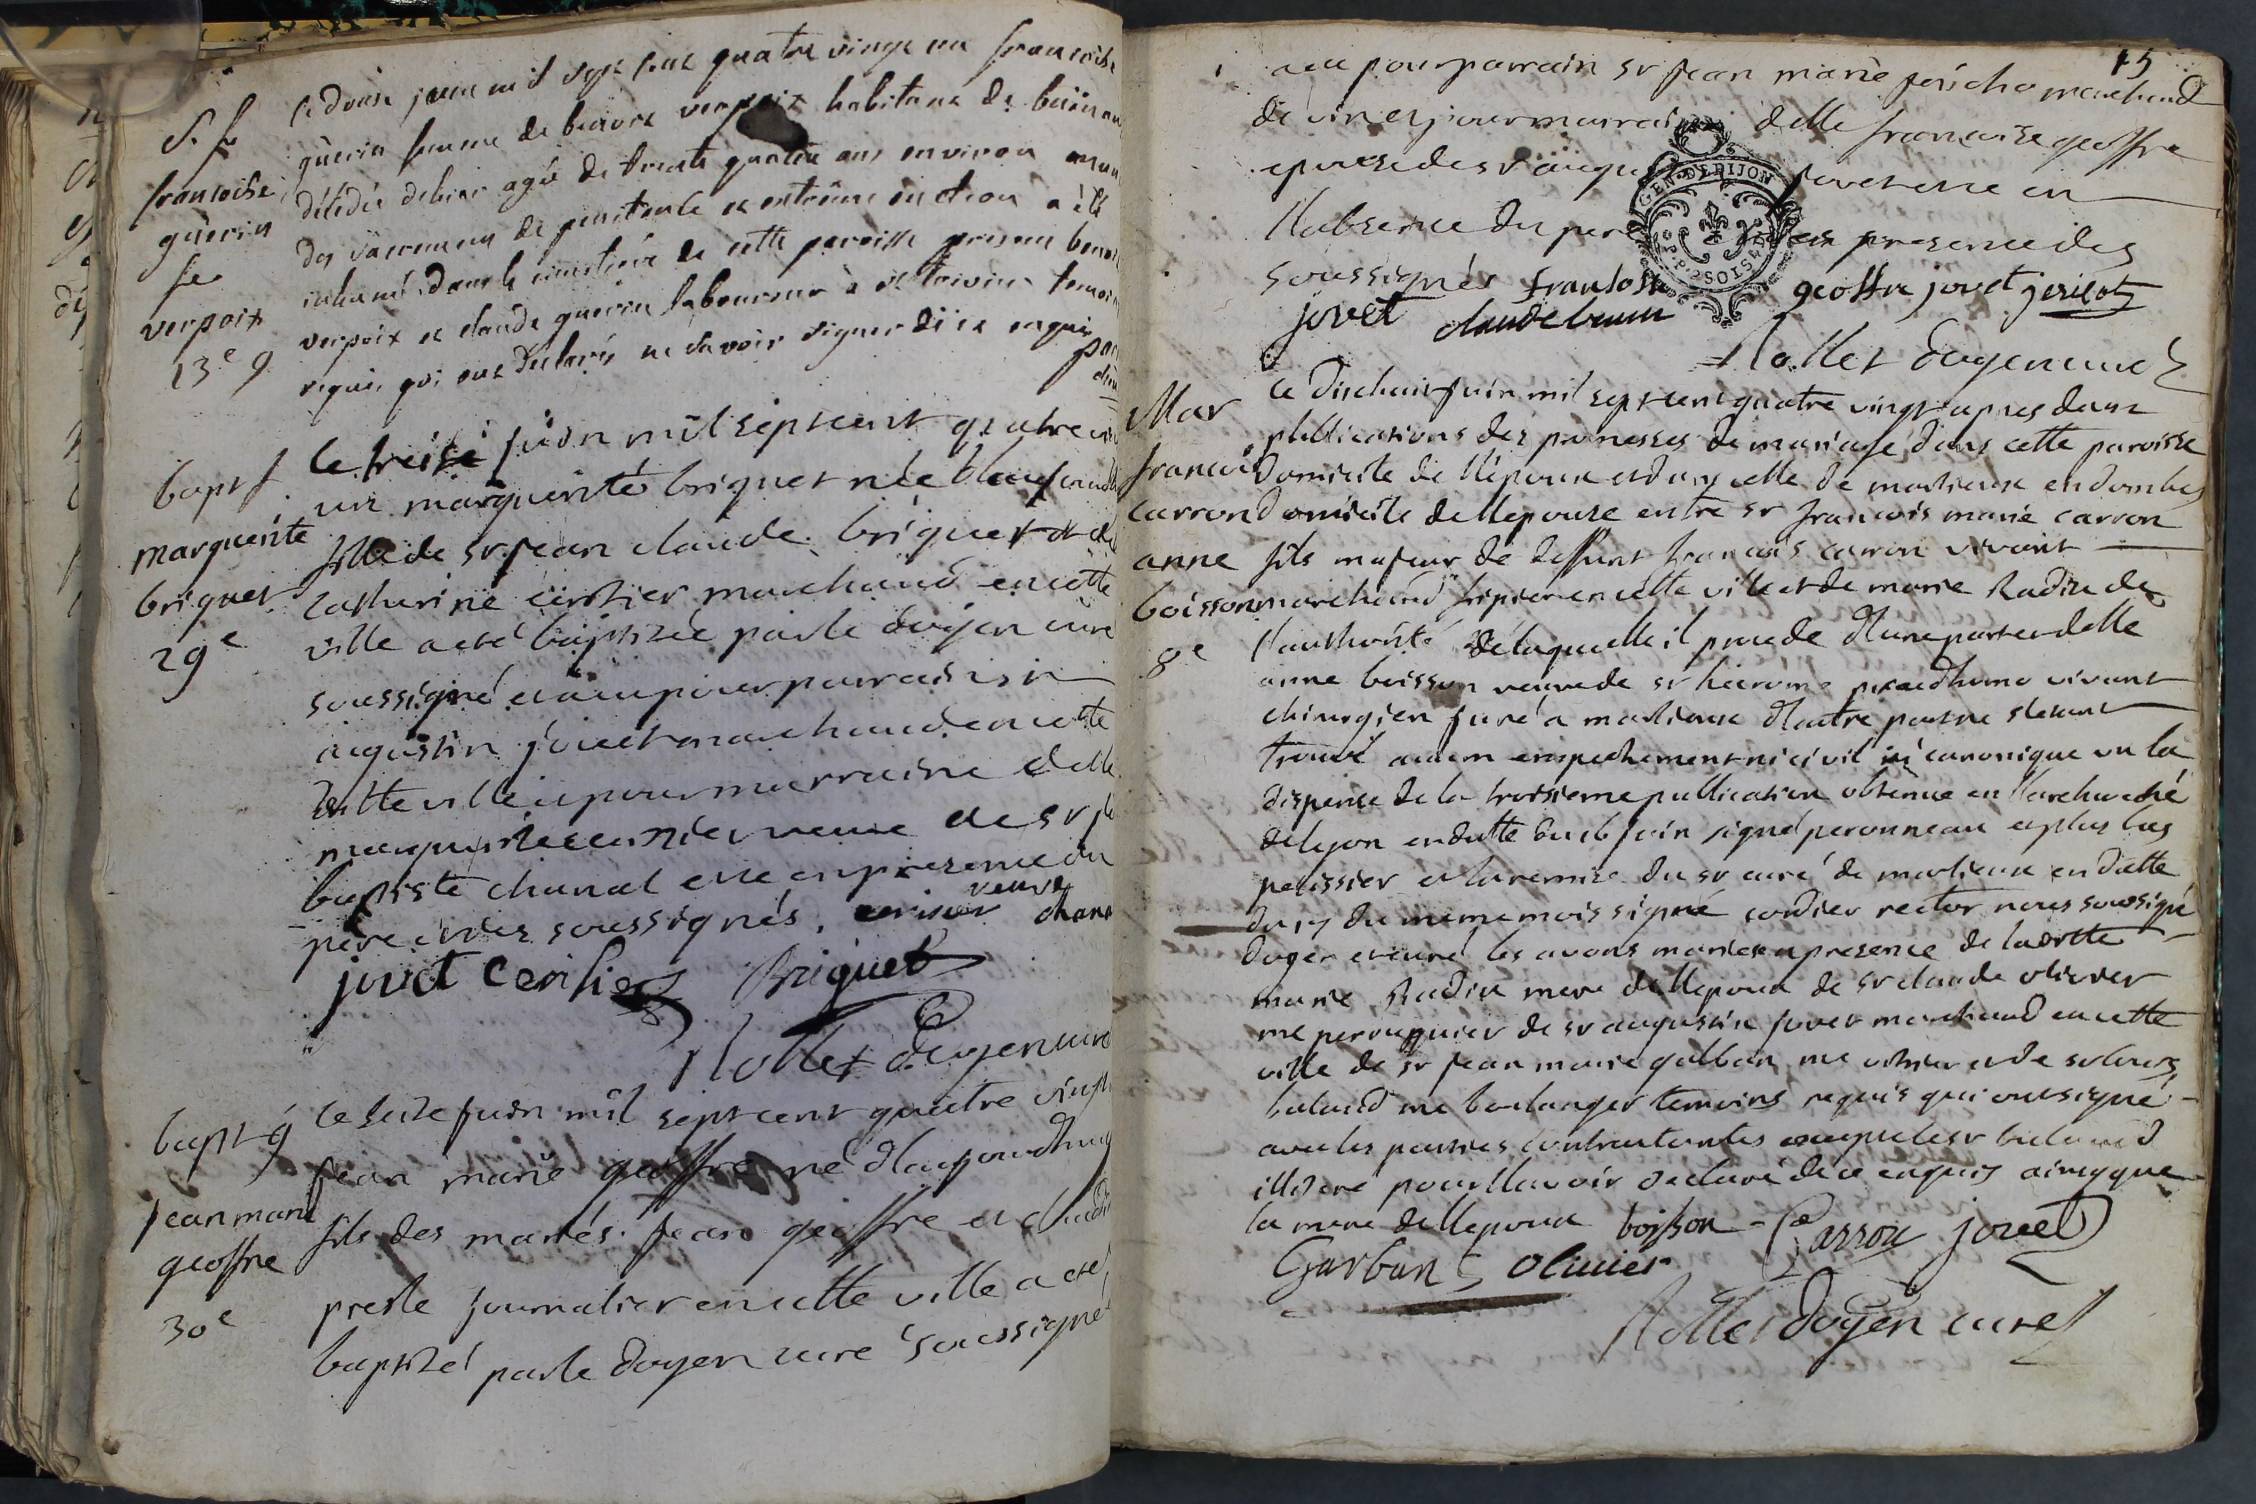 S. f.
francoise
guerin
fe
verpoix
13e 9
le douse juin mil sept cent quatre vingt un francoise
guerin femme de benoit verpoix habitant de
décédée dhier agée de trente quatre ans environ
des sacremens de penitence et extreme onction a été
inhumé dans le cimetiere de cette paroisse presens benoit
verpoix et claude guerin laboureur temoins
requis qui ont déclarés ne savoir signer de ce enquis
bapt f.
marguerite
briquet
29e
le treise juin mil sept cent quatre vin
un marguerite briquet née
fille de sr jean claude briquet et de
catherine cerisier marchand en cette
ville a eté baptisée par le doyen curé
soussigné et a eu pour parrain sr
augustin jovet marchand en cette
ditte ville et pour marraine delle
marguerite cerisier veuve de sr j
baptiste chanal et ce en presence du
pere et des soussignés. cerisier veuve chana
jovet Cerisier Briquet
Nollet doyen curé
bapt g
jean marie
geoffre
30e
le seise juin mil sept cent quatre vingt
jean marie geoffre né d'laujourdhuy
fils des mariés jean geoffre et claudi
presle journalier en cette ville a eté
baptisé par le doyen curé soussigné
75
a eu pour parrain sr jean marie jericho marchand
de vin et pour marraine delle francoise geoffre
epouse de sr augustin jovet et ce en
l'labsence du pere et en presence des
soussignés geoffre jovet jericot
jovet claude brun
Nollet doyen curé
Mar
francois
carron
anne
boisson
8e
ce dischuit juin mil sept cent quatre vingt apres deux
publications des promesses de mariage dans cette paroisse
domicile de l'lépoux et dans celle de marlieux en dombes
domicile de llepouse entre sr francois marie carron
fils majeur de deffunt francois carron vivant
marchand fripier en cette ville et de marie Radix de
l'lauthorité de laquelle il procede dlune part et delle
anne boisson veuve de sr hierome prudhomo vivant
chirurgien juré a marlieux dlautre part ne sletant
trouvé aucun empechement ni civil ni canonique vu la
dispense de la troisieme publication obtenue en llarcheveché
de lyon en datte du 16 juin signé peronneau et plus bas
pelissier et la remise du sr curé de marlieux en datte
du 17 du meme mois signé cordier rector nous soussigné
doyen et curé les avons mariés en presence de laditte
marie Radix mere de llepoux de sr claude olivier
me perruquier de sr augustin jovet marchand en cette
ville de sr jean marie galban me vitrier et de sr
balaud me boulanger temoins requis qui ont signé
avec les parties contractantes excepté le sr balaud
illitéré pour llavoir declaré de ce enquis ainsy que
la mere de llepoux boisson Carron jovet
Garban olivier
Nollet doyen curé